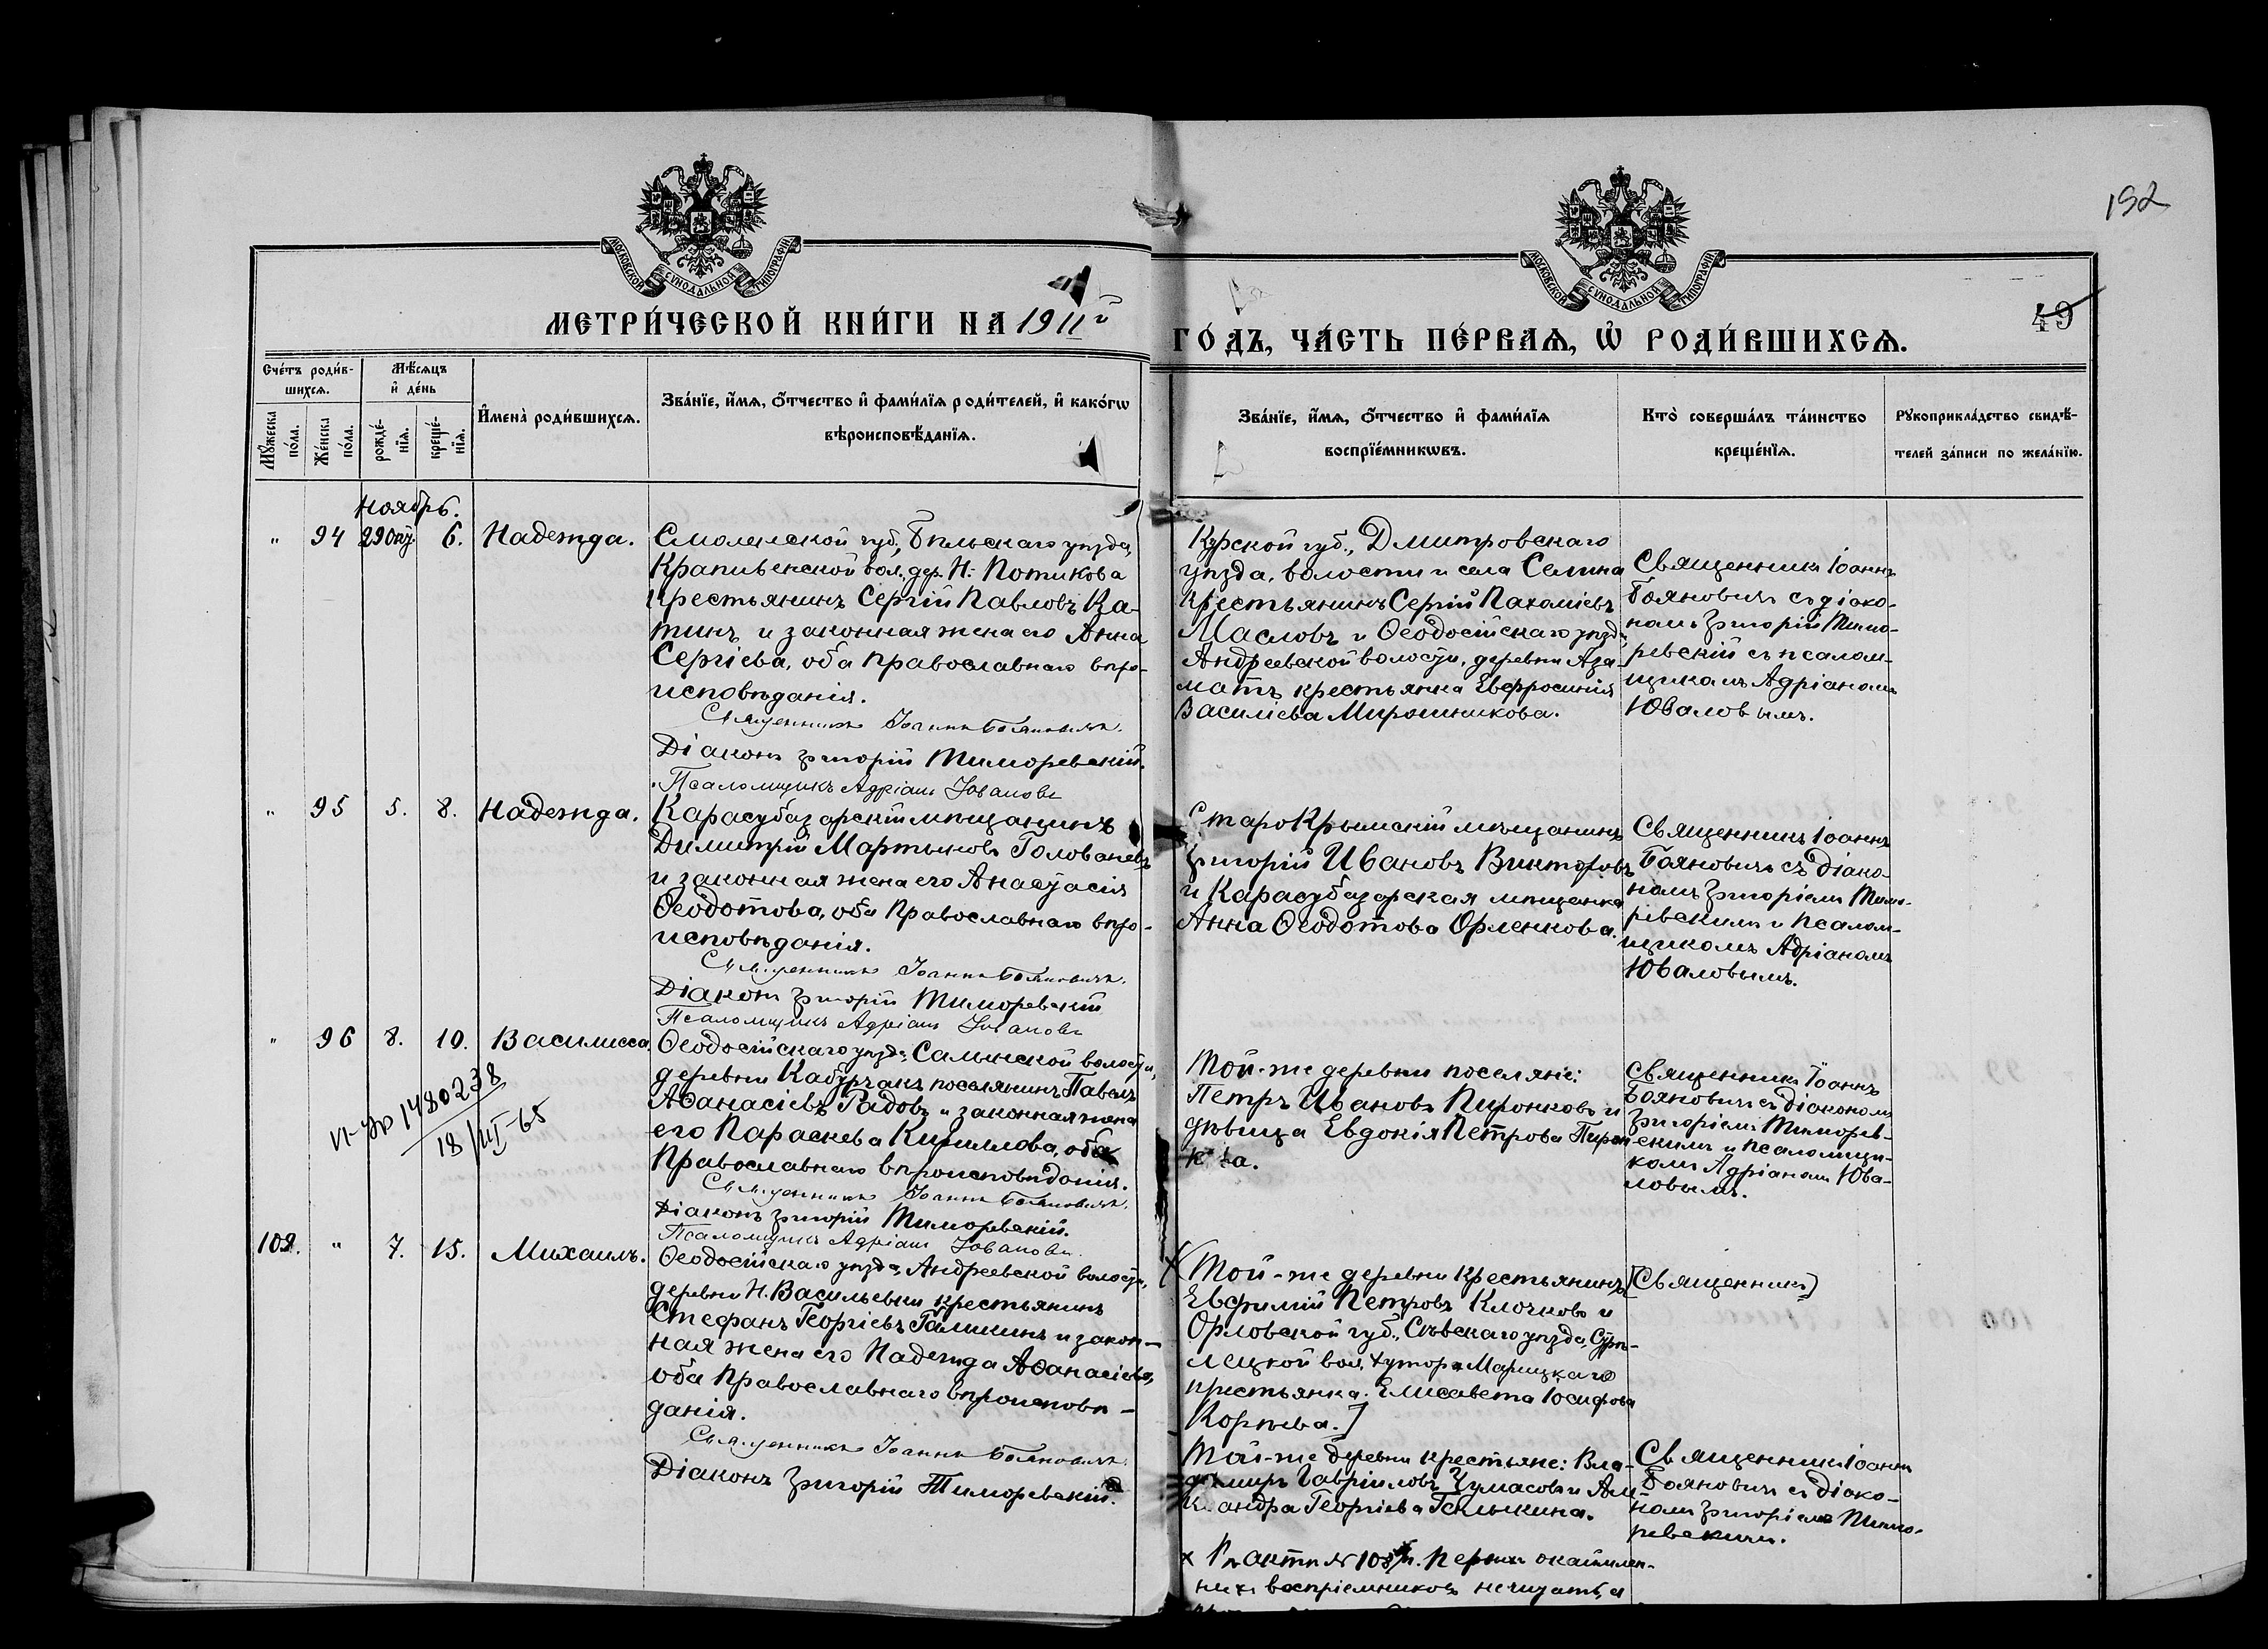 192
МОСКОВСКОЙ СѴНОДАЛЬНОЙ ТИПОГРАФІИ
МОСКОВСКОЙ СѴНОДАЛЬНОЙ ТИПОГРАФІИ
49
МЕТРИ́ЧЕСКОЙ КНИ́ГИ НА 1911й
ГО́ДЪ, ЧА́СТЬ ПЕ́РВАѦ, Ѡ҆ РОДИ́ВШИХСѦ.
Сче́тъ роди́в-
шихсѧ.
Мѣ́сѧцъ
и҆ де́нь
Мꙋ́жеска
по́ла.
Же́нска
по́ла.
рожде́-
нїѧ.
креще́-
нїѧ.
И҆мена̀ роди́вшихсѧ.
Зва́нїе, и҆́мѧ, ѻ҆́тчество и҆ фами́лїѧ роди́телей, и҆ како́гѡ
вѣроисповѣ́данїѧ.
Зва́нїе, и҆́мѧ, ѻ҆́тчество и҆ фами́лїѧ
воспрїе́мникѡвъ.
Кто̀ соверша́лъ та́инство
креще́нїѧ.
Рꙋкоприкла́дство свидѣ́-
телей за́писи по жела́нїю.
Ноябрь.
" 94 29 Окт. 6. Надежда.
Смоленской губ., Бѣльскаго уѣзда,
Крапивенской вол., дер. Н. Потикова
крестьянинъ Сергій Павловъ Ка-
тинъ и законная жена его Анна
Сергіева, оба православнаго вѣро-
исповѣданія.
Священникъ Іоаннъ Бояновичъ.
Діаконъ Григорій Тиморевскій.
Псаломщикъ Адріанъ Юваловъ
Курской губ., Дмитровскаго
уѣзда, волости и села Селина
крестьянинъ Сергій Пахоміевъ
Масловъ и Ѳеодосійскаго уѣзда,
Андреевской волости, деревни Аза-
матъ крестьянка Евфросинія
Василіева Мирошникова.
Священникъ Іоаннъ
Бояновичъ съ діако-
номъ Григорій Тимо-
ревскій съ псалом-
щикомъ Адріаномъ
Юваловымъ.
" 95 5. 8. Надежда.
Карасубазарскій мѣщанинъ
Димитрій Мартыновъ Голованевъ
и законная жена его Анастасія
Ѳеодотова, оба православнаго вѣро-
исповѣданія.
Священникъ Іоаннъ Бояновичъ.
Діаконъ Григорій Тиморевскій
Псаломщикъ Адріанъ Юваловъ
СтароКрымскій мѣщанинъ
Григорій Ивановъ Викторовъ
и Карасубазарская мѣщанка
Анна Ѳеодотова Орленкова.
Священникъ Іоаннъ
Бояновичъ съ діако-
номъ Григоріемъ Тимо-
ревскимъ и псалом-
щикомъ Адріаномъ
Юваловымъ.
" 96 8. 10. Василисса.
VI-ЯР 1480238
18/III-65
Ѳеодосійскаго уѣзда, Салынской волости,
деревни Кабурчакъ поселянинъ Павелъ
Аѳанасіевъ Радовъ и законная жена
его Параскева Кириллова, оба
православнаго вѣроисповѣданія.
Священникъ Іоаннъ Бояновичъ.
Діаконъ Григорій Тиморевскій.
Псаломщикъ Адріанъ Юваловъ.
Той-же деревни поселяне:
Петръ Ивановъ Пиронковъ и
дѣвица Евдокія Петрова Пирон-
кова.
Священникъ Іоаннъ
Бояновичъ съ діакономъ
Григоріемъ Тиморев-
скимъ и псаломщи-
комъ Адріаномъ Юва-
ловымъ.
108. " 7. 15. Михаилъ.
Ѳеодосійскаго уѣзда, Андреевской волости,
деревни Н. Васильевки крестьянинъ
Стефанъ Георгіевъ Галыкинъ и закон-
ная жена его Надежда Аѳанасіева,
оба православнаго вѣроисповѣ-
данія.
Священникъ Іоаннъ Бояновичъ.
Діаконъ Григорій Тиморевскій.
х[Той-же деревни крестьянинъ
Евфимій Петровъ Клочковъ и
Орловской губ., Сѣвскаго уѣзда,
вол. хутора Марицкаго
крестьянка: Елисавета Іосифова
Корнѣева.]
[Священникъ]
Той-же деревни крестьяне: Вла-
диміръ Гавріиловъ Чумасовъ и Але-
ксандра Георгіева Галыкина.
Священникъ Іоаннъ
Бояновичъ съ діако-
номъ Григоріемъ Тимо-
ревскимъ.
х Въ актѣ № 108 м. п.
ныхъ воспріемниковъ не читать, а